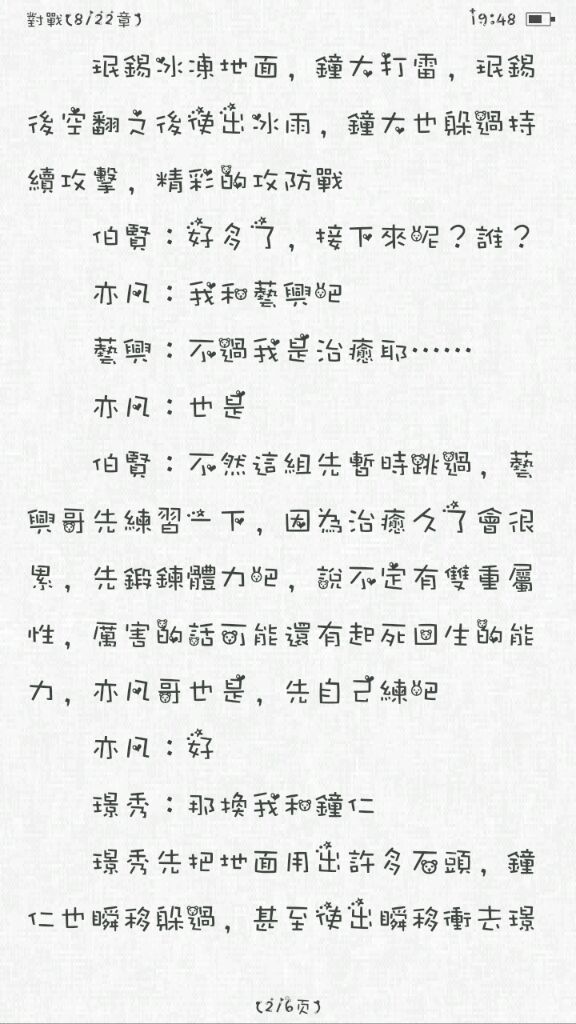 對戰(8/22章)
19:48
珉錫冰凍地面，鐘大打雷，珉錫
後空翻之後使出冰雨，鐘大也躲過持
續攻擊，精彩的攻防戰
伯賢：好多了，接下來呢？誰？
亦凡：我和藝興吧
藝興：不過我是治癒耶……
亦凡：也是
伯賢：不然這組先暫時跳過，藝
興哥先練習一下，因為治癒久了會很
累，先鍛鍊體力吧，說不定有雙重屬
性，厲害的話可能還有起死回生的能
力，亦凡哥也是，先自己練吧
亦凡：好
璟秀：那換我和鐘仁
璟秀先把地面用出許多石頭，鐘
仁也瞬移躲過，甚至使出瞬移衝去璟
(2/6页)